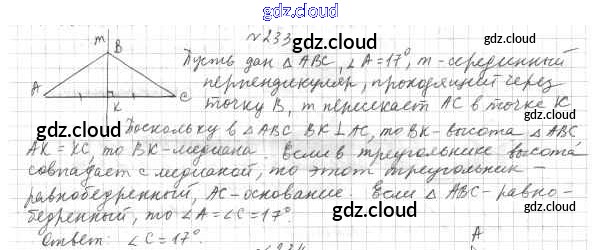 gdz.cloud
№233
gdz.cloud
gdz.cloud
m
B
A
C
K
Пусть дан △ABC, ∠A = 17°, m - серединный
перпендикуляр, проходящий через
точку B, m пересекает AC в точке K
gdz.cloud
gdz.cloud
Поскольку в △ABC BK⊥AC, то BK - высота △ABC
AK = KC, то BK - медиана. Если в треугольнике высота
gdz.cloud
совпадает с медианой, то этот треугольник -
gdz.cloud
равнобедренный, AC - основание. Если △ABC - равно-
бедренный, то ∠A = ∠C = 17°.
gdz.cloud
gdz.cloud
Ответ: ∠C = 17°.
№234
A
gdz.cloud